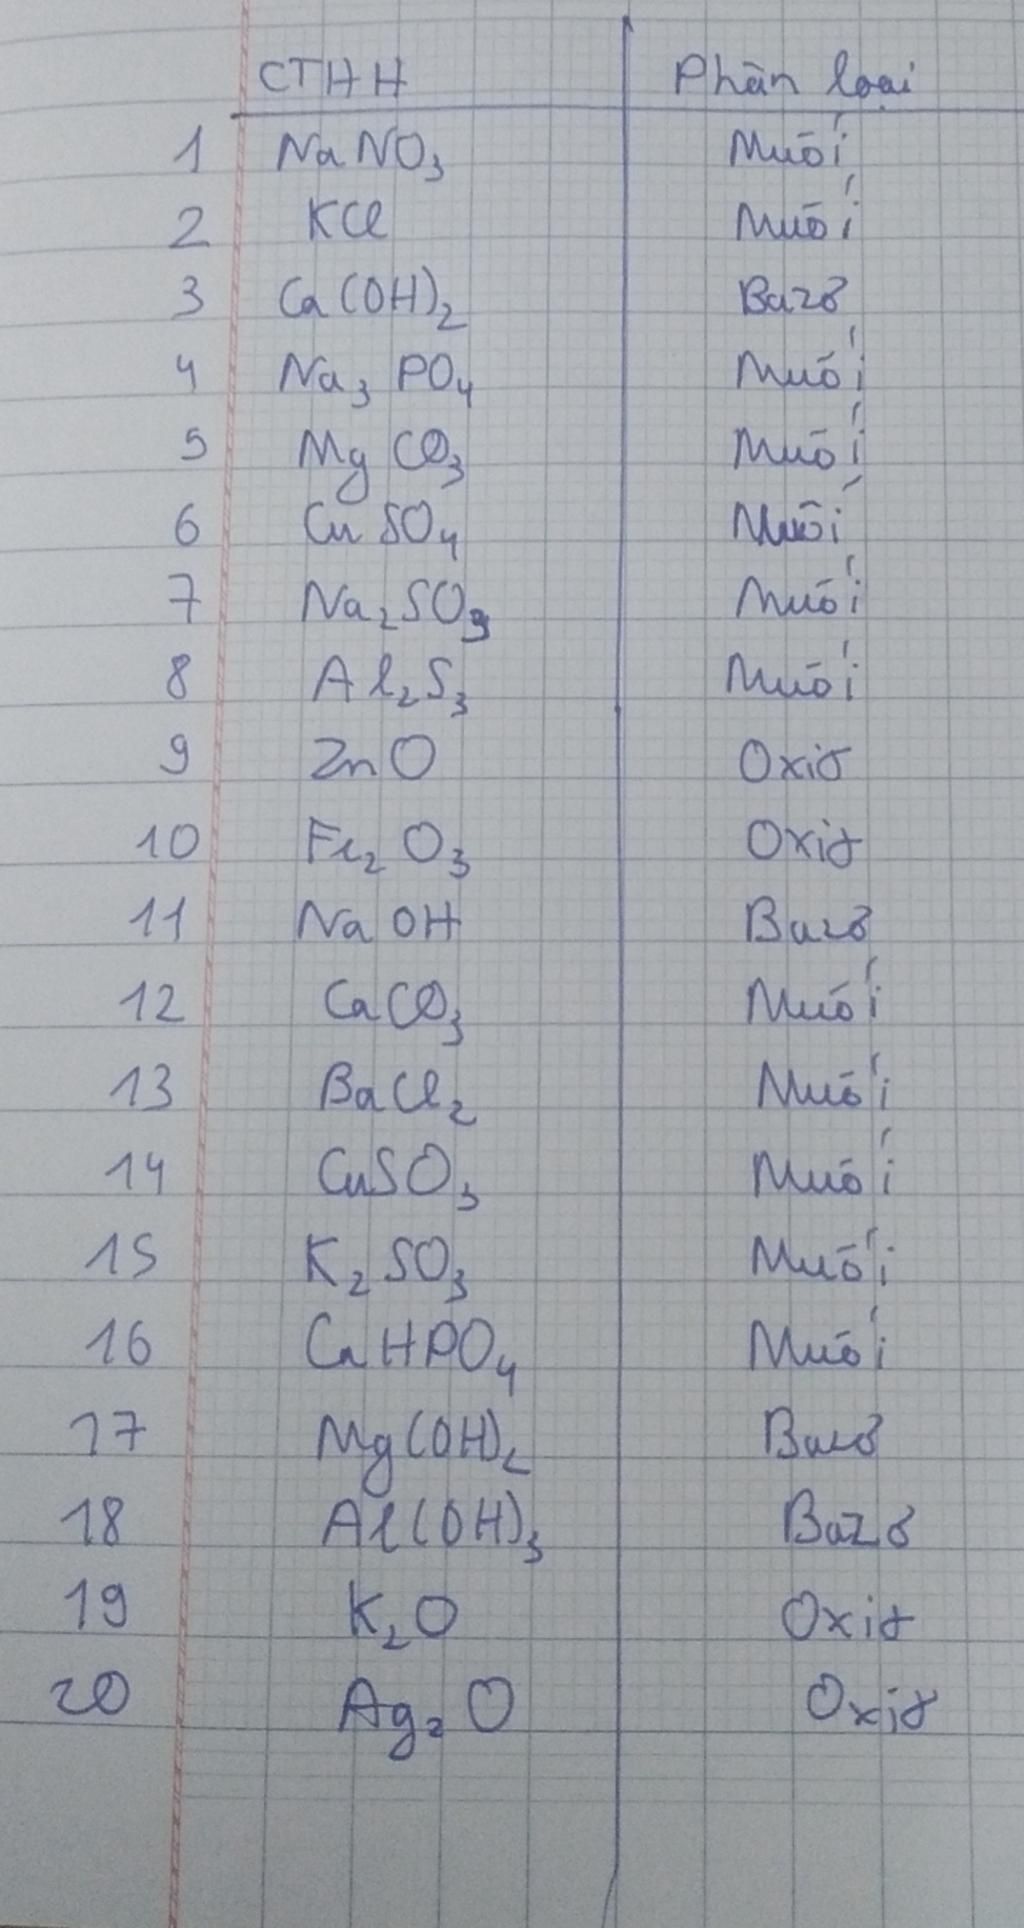 CTHH Phân loại
1 NaNO3 Muối
2 KCl Muối
3 Ca(OH)2 Bazơ
4 Na3PO4 Muối
5 MgCO3 Muối
6 CuSO4 Muối
7 Na2SO3 Muối
8 Al2S3 Muối
9 ZnO Oxit
10 Fe2O3 Oxit
11 NaOH Bazơ
12 CaCO3 Muối
13 BaCl2 Muối
14 CuSO3 Muối
15 K2SO3 Muối
16 CaHPO4 Muối
17 Mg(OH)2 Bazơ
18 Al(OH)3 Bazơ
19 K2O Oxit
20 Ag2O Oxit